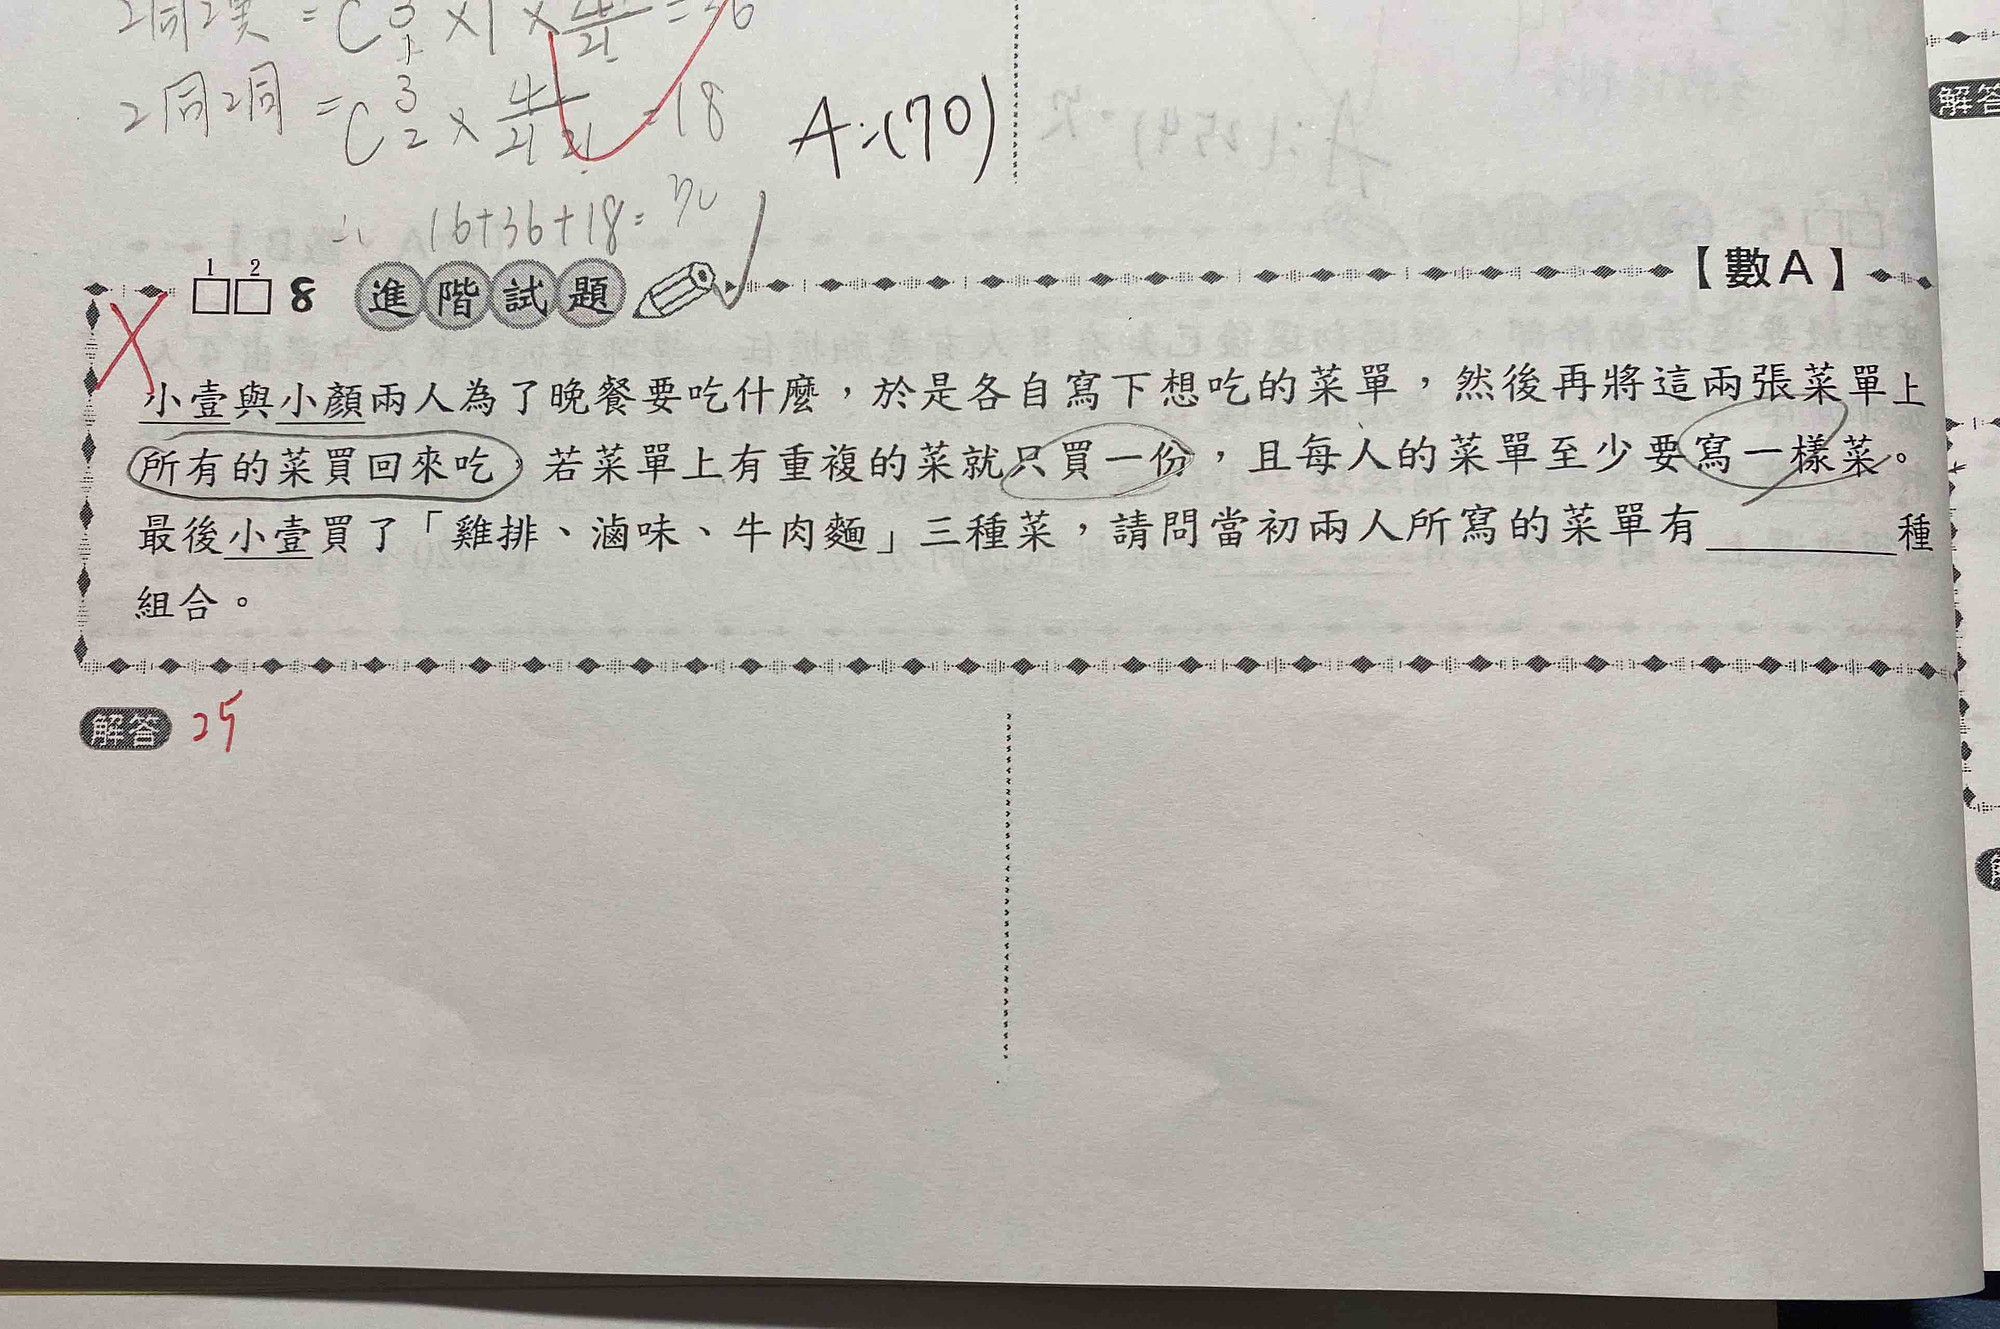 2同2異 = C 3 1 ×1× 4! 2! = 36
2同2同 = C 3 2 × 4! 2! 2! = 18
A:(70)
∴ 16+36+18=70
1 2
□□ 8 進階試題 【數A】
小壹與小顏兩人為了晚餐要吃什麼，於是各自寫下想吃的菜單，然後再將這兩張菜單上
所有的菜買回來吃，若菜單上有重複的菜就只買一份，且每人的菜單至少要寫一樣菜。
最後小壹買了「雞排、滷味、牛肉麵」三種菜，請問當初兩人所寫的菜單有________種
組合。
解答 25
解答